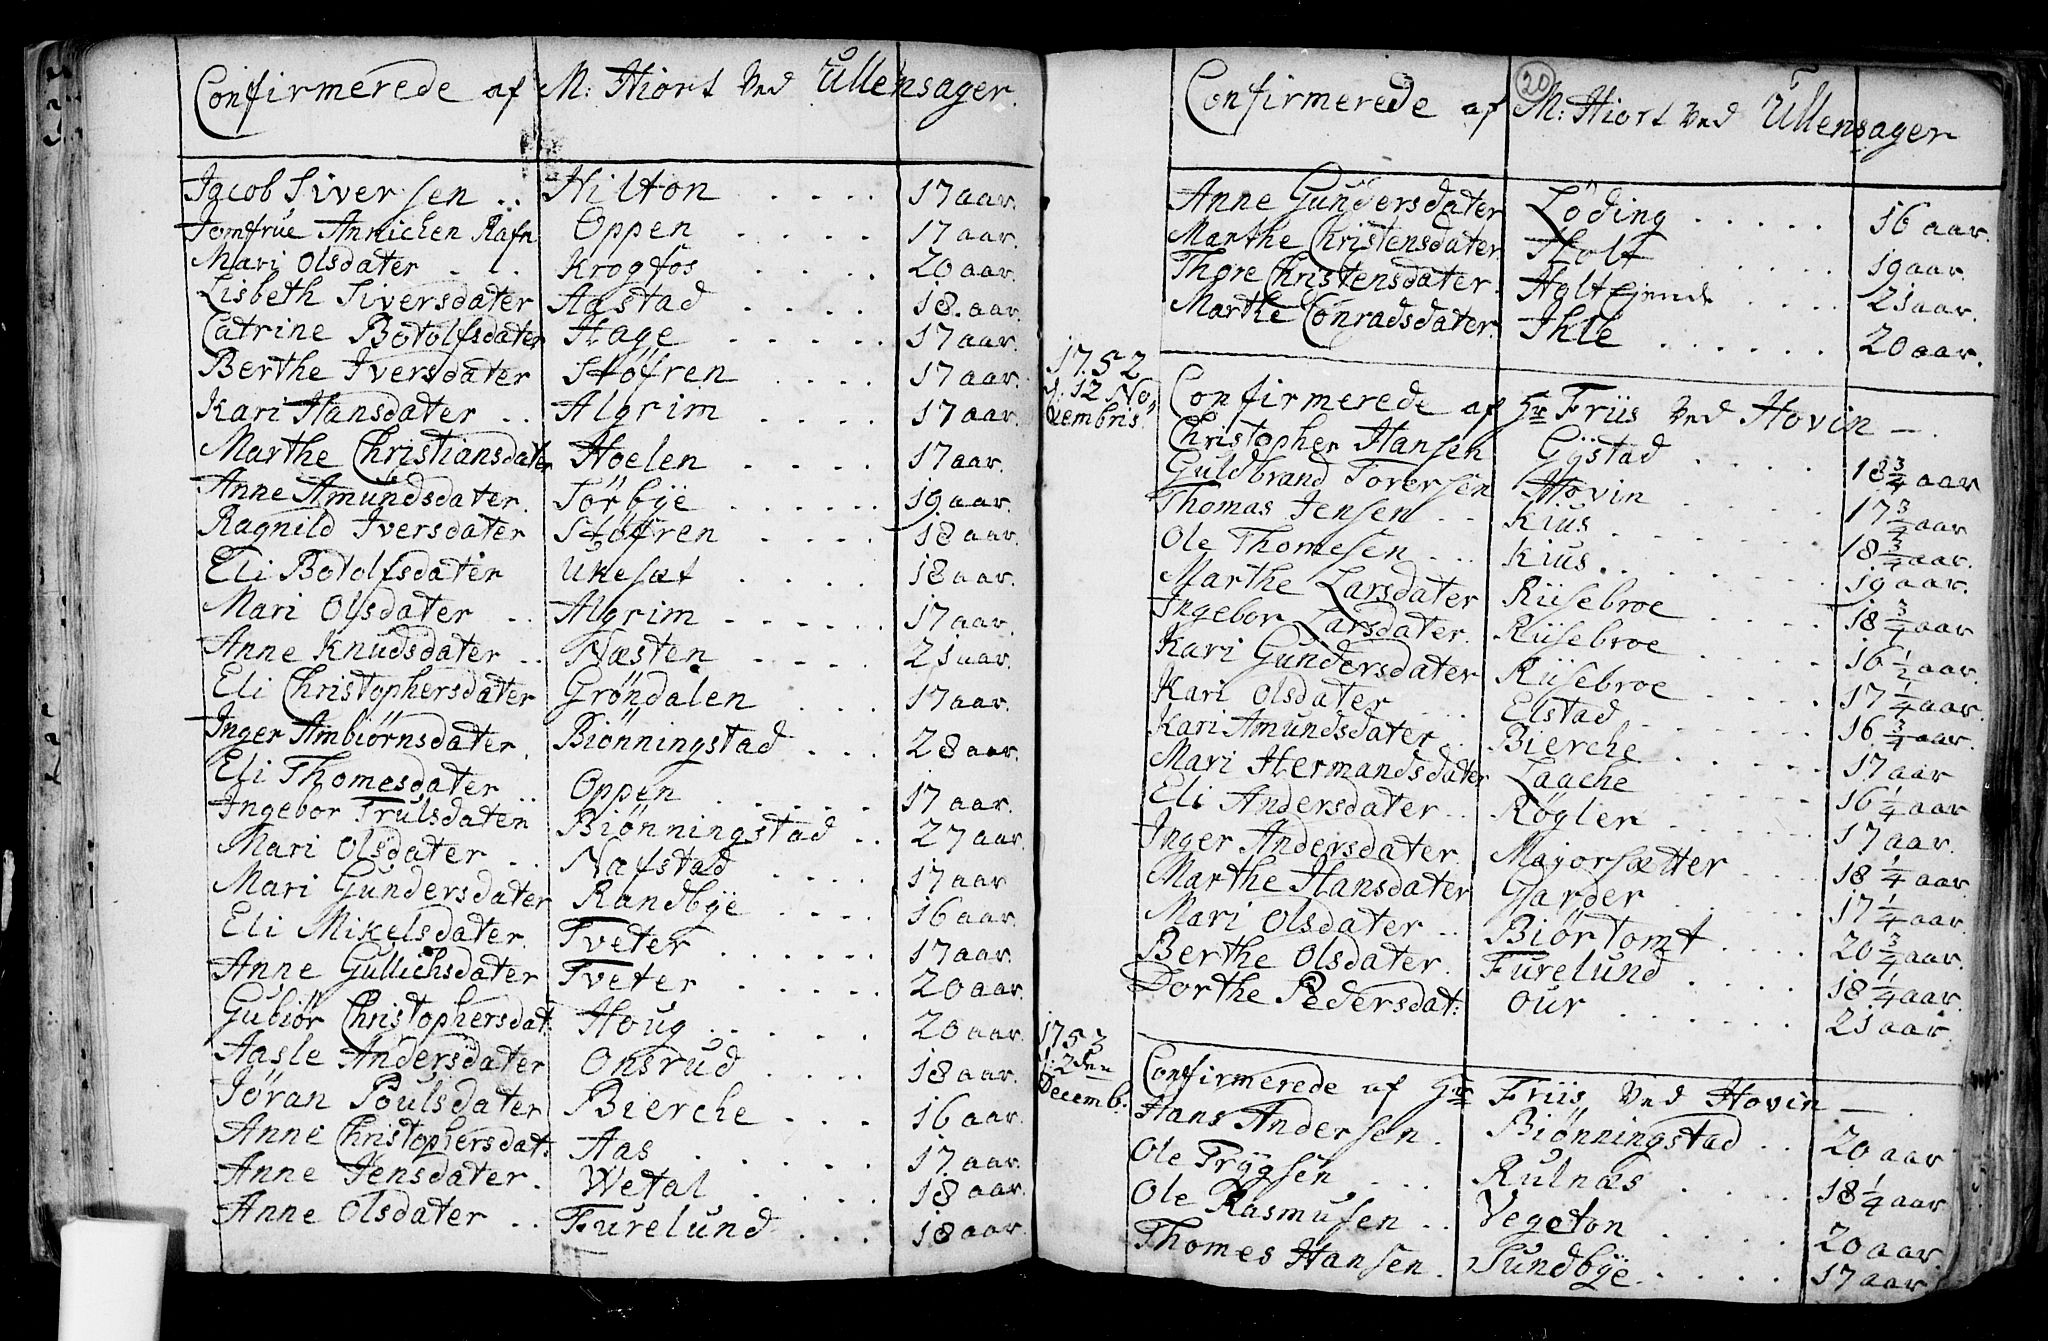 Confirmerede af M: Hiort ved Ullensager.
Jacob Siversen .. Hilton .... 17 aar.
Jomfrue Annichen Rafn Oppen .... 17 aar.
Mari Olsdater ... Krogfos .... 20 aar.
Lisbeth Siversdater Aastad .... 18. aar.
Catrine Botolfsdater Hage ..... 17 aar.
Berthe Iversdater Støfren .... 17 aar.
Kari Hansdater .. Algrim .... 17 aar.
Marthe Christiansdater Hoelen .... 17 aar.
Anne Amundsdater. Tørbÿe ...... 19 aar.
Ragnild Iversdater Støfren .... 18 aar.
Eli Botolfsdater Ukesæt .... 18 aar.
Mari Olsdater .. Algrim ...... 17 aar.
Anne Knudsdater .. Næsten .... 21 aar.
Eli Christophersdater Grøndalen ... 17 aar.
Inger Ambiørnsdater. Biønningstad ... 28 aar.
Eli Thomesdater .. Oppen ...... 17 aar.
Ingebor Trulsdater Biønningstad .. 27 aar.
Mari Olsdater .. Nafstad .... 17 aar
Mari Gundersdater Randbÿe .... 16 aar.
Eli Mikelsdater. Tveter ...... 17 aar.
Anne Gullichsdater Tveter ..... 20 aar.
Gubiør Christophersdat: Houg ..... 20 aar.
Aasle Andersdater Onsrud .... 18 aar.
Jøran Poulsdater Bierche ... 16 aar.
Anne Christophersdat: Aas ...... 17. aar.
Anne Jensdater. Wetal .... 18 aar.
Anne Olsdater .. Furelund ... 18 aar.
20
Confirmerede af M: Hiort ved Ullensager
Anne Gundersdater Løding .... 16 aar.
Marthe Christensdater Holt ..... 19 aar.
Thore Christensdater. Holt Ejende .... 21 aar.
Marthe Conradsdater. Ihle ...... 20 aar.
1752
d. 12 No,
vembris.
Confirmerede af Hr Friis ved Hovin —.
Christopher Hansen Gÿstad .... 18 3/4 aar
Guldbrand Torersen Hovin ..... 17 3/4 aar
Thomas Jensen .. Kius ...... 18 3/4 aar.
Ole Thomesen ... Kius ...... 19 aar.
Marthe Larsdater Riisebroe .... 18 3/4 aar
Ingebor Larsdater. Riisebroe .... 16 1/2 aar.
Kari Gundersdater Riisebroe .... 17 1/4 aar.
Kari Olsdater ... Elstad ..... 16 3/4 aar.
Kari Amundsdater .. Bierche ..... 17 aar
Mari Hermandsdater Laache ..... 16 1/4 aar
Eli Andersdater .. Røgler ..... 17 aar.
Inger Andersdater. Mayorsætter .... 18 1/4 aar
Marthe Hansdater Garder ..... 17 1/4 aar.
Mari Olsdater .. Biørtomt .... 20 3/4 aar.
Berthe Olsdater. Furelund .... 18 1/4 aar
Dorthe Pedersdat: Our ...... 21 aar.
1753
d. 2den
Decemb.
Confirmerede af Hr Friis ved Hovin —.
Hans Andersen. Biønningstad .. 20 aar
Ole Trÿgsen ... Rulnæs ..... 18 1/4 aar
Ole Rasmusen .. Vegeton ..... 20 aar.
Thomes Hansen. Sundbÿe ..... 17 aar.